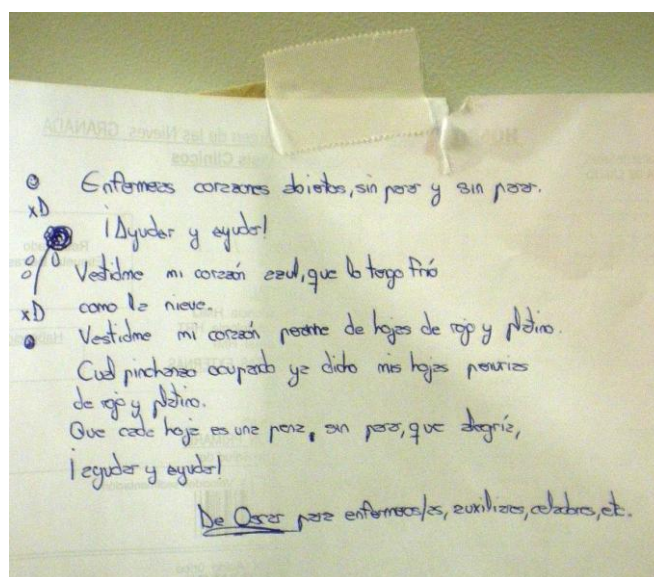 Enfermeras corazones abiertos, sin parar y sin parar.
xD
¡Ayudar y ayudar!
Vestidme mi corazón azul, que lo tengo frío
xD
como la nieve.
Vestidme mi corazón de hojas de rojo y platino.
Cual pinchazo ocupado ya dicho mis hojas
de rojo y platino.
Que cada hoja es una pena, sin parar, que alegría,
¡ayudar y ayudar!
De Oscar para enfermeros/as, auxiliares, celadores, etc.